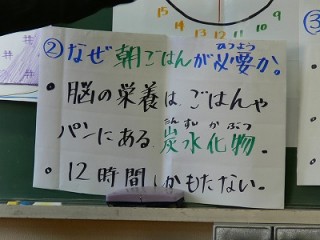 15 14 13 12 11 10 9
②なぜ朝ごはんが必要か。
ひつよう
・脳の栄養は、ごはんや
パンにある炭水化物。
たんすいかぶつ
・12時間しかもたない。
③